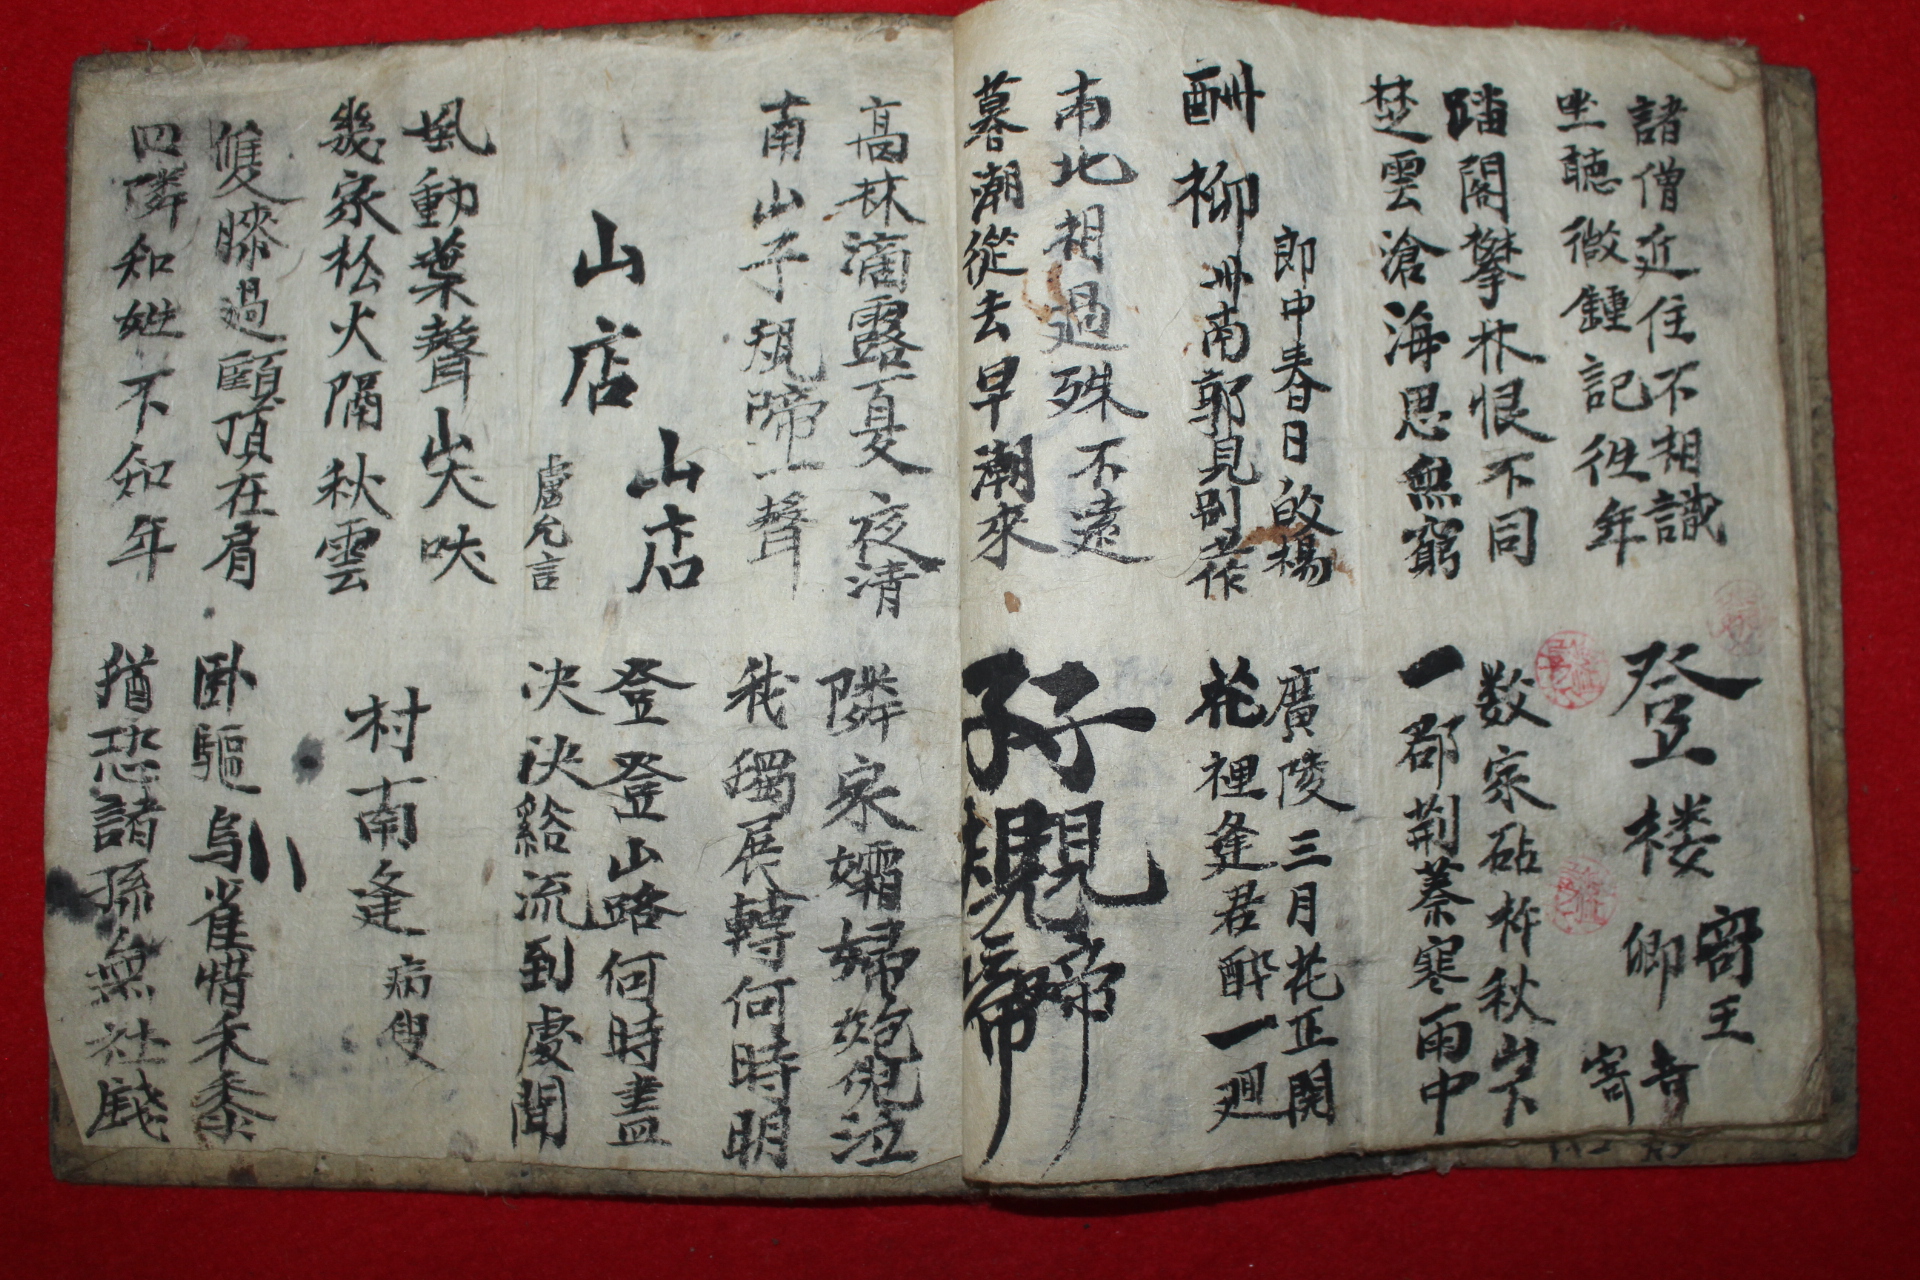 諸僧近住不相識
坐聽微鍾記往年
登楼
寄王
卿
寄
踏閣攀林恨不同
楚雲滄海思無窮
数家砧杵秋山下
一郡荊蓁寒雨中
酬柳
郎中春日皈楊
州南郭見別作
廣陵三月花正開
花裡逢君醉一廻
南北相過殊不遠
暮潮從去早潮來
子規啼
子規啼
高林滴露夏夜清
南山子規啼一聲
隣家孀婦抱兒泣
我獨展轉何時明
山店
山店
盧允言
登登山路何時盡
决决谿流到處聞
風動葉聲山犬吠
幾家松火隔秋雲
村南逢病叟
雙膝過頤頂在肩
四隣知姓不知年
臥驅烏雀惜禾黍
猶恐諸孫無社錢